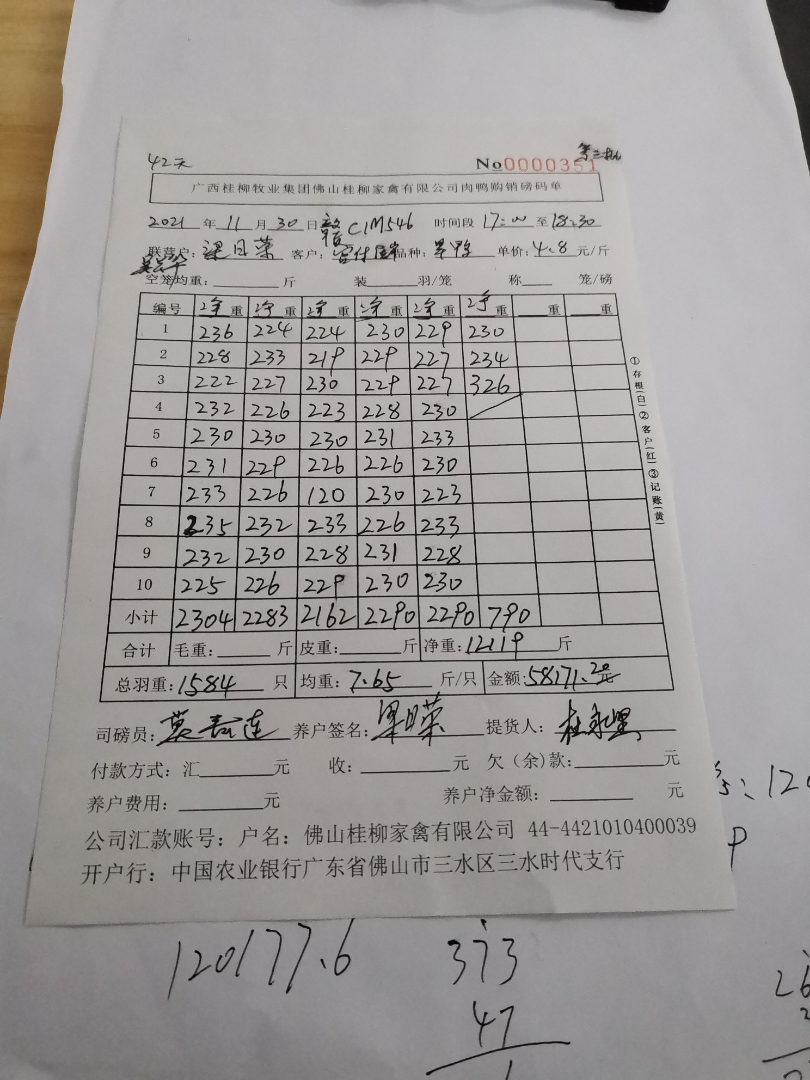 42天 No0000351
广西桂柳牧业集团佛山桂柳家禽有限公司肉鸭购销磅码单
2021 年 11 月 30 日 C1M546 时间段 17:00 至 18:30
联营户: 梁日荣 客户: 品种: 单价: 4.8 元/斤
空笼均重: 斤 装 羽/笼 称 笼/磅
编号 净重 净重 净重 净重 净重 净重 重 重
1 236 224 224 230 229 230
2 228 233 219 229 227 234
3 222 227 230 229 227 326
4 232 226 223 228 230
5 230 230 230 231 233
6 231 229 226 226 230
7 233 226 120 230 223
8 235 232 233 226 233
9 232 230 228 231 228
10 225 226 229 230 230
小计 2304 2283 2162 2290 2290 790
合计 毛重: 斤 皮重: 斤 净重: 12119 斤
总羽重: 1584 只 均重: 7.65 斤/只 金额: 58171.20元
司磅员: 养户签名: 梁日荣 提货人:
付款方式: 汇 元 收: 元 欠(余)款: 元
养户费用: 元 养户净金额: 元
公司汇款账号: 户名: 佛山桂柳家禽有限公司 44-4421010400039
开户行: 中国农业银行广东省佛山市三水区三水时代支行
①存根(白)②客户(红)③记账(黄)
120177.6 373
47